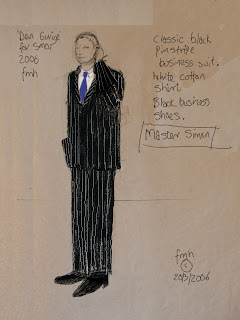 fmh
2006
Classic black
Pinstripe
business suit.
White cotton
shirt
Black business
shoes.
Master Simon
fmh
©
20/3/2006